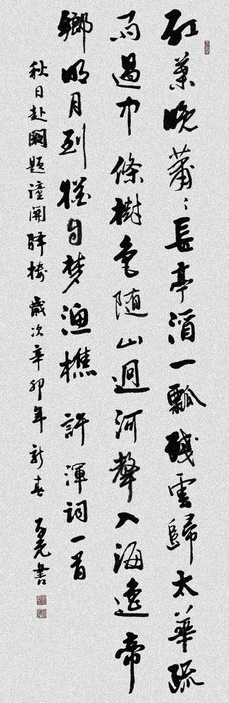 红葉晚蕭〻長亭酒一瓢殘雲歸太華疏
雨過中條樹色随山迥河聲入海遥帝
鄉明月到猶自夢漁樵 許渾詞一首
秋日赴闕題潼關驛樓 歲次辛卯年新春 書